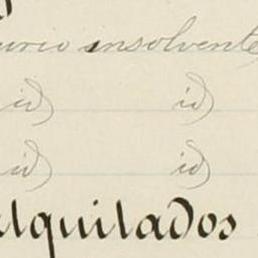 insolvente
id) id)
id) id)
alquilados